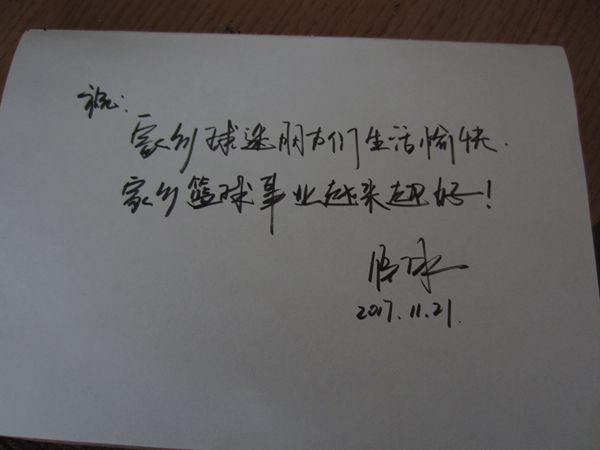 祝:
家乡球迷朋友们生活愉快.
家乡篮球事业越来越好!
2017.11.21.